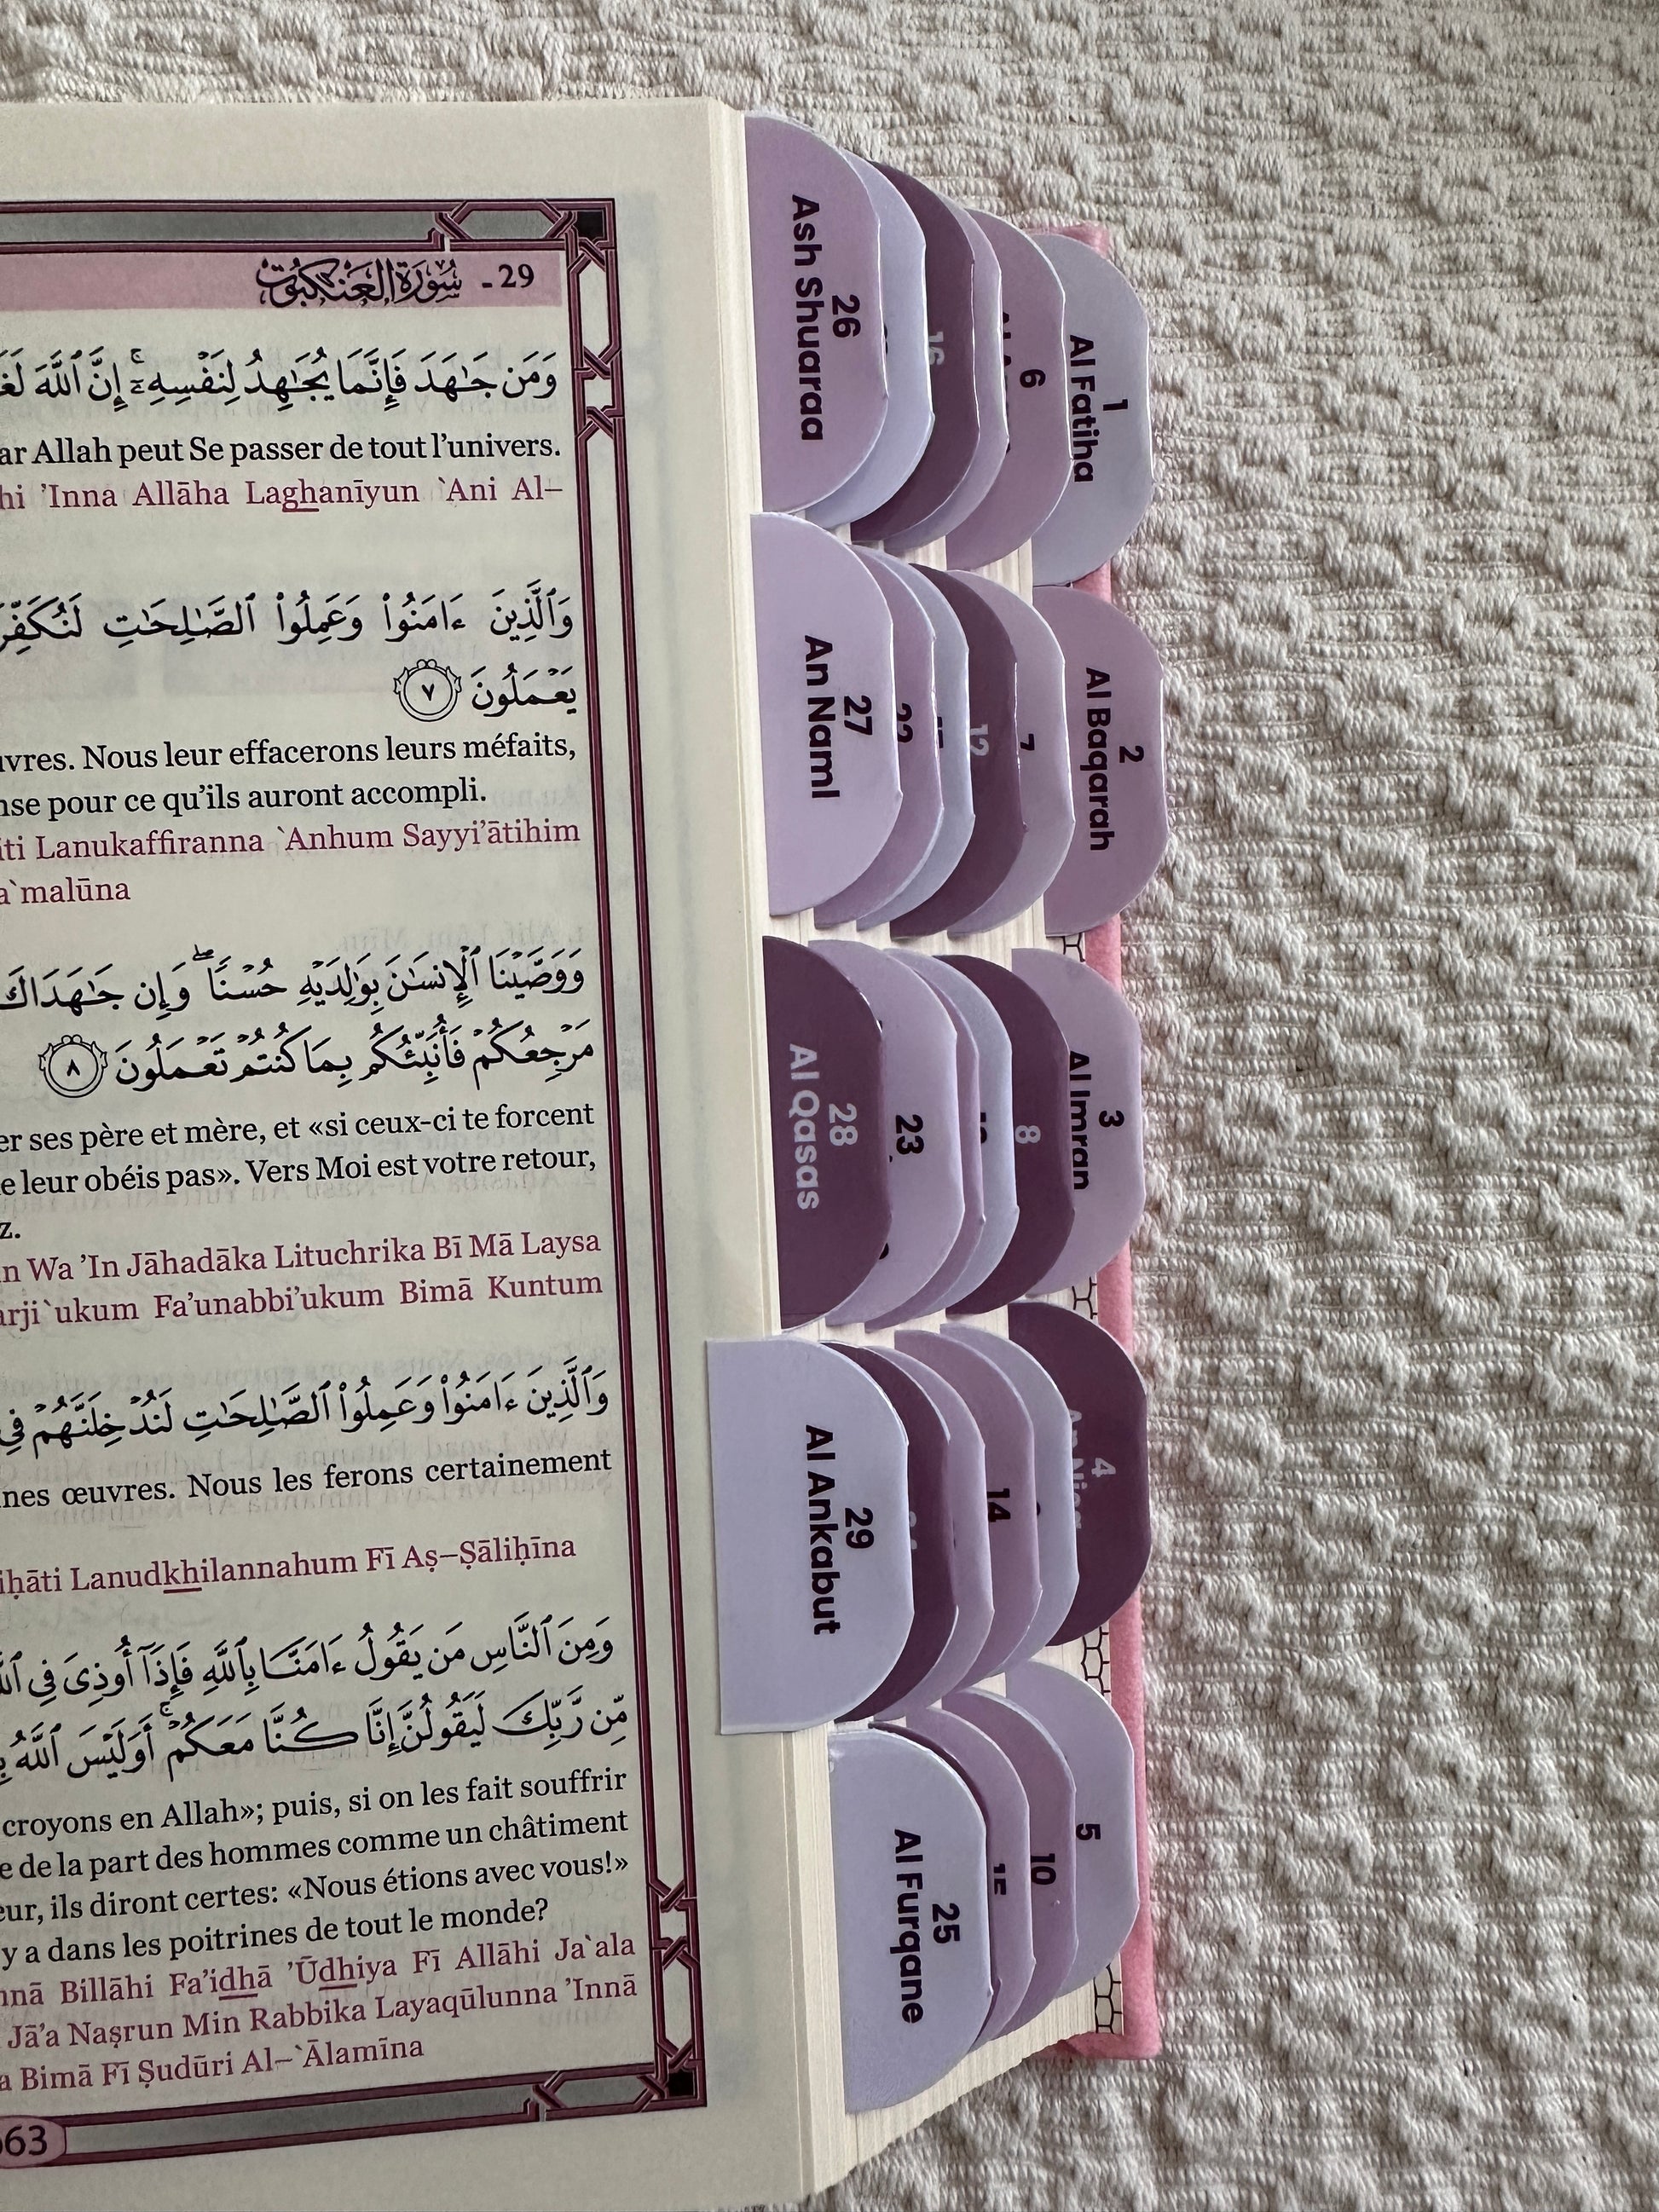 29 - سُورَةُ العَنكَبُوت
وَمَن جَـٰهَدَ فَإِنَّمَا يُجَـٰهِدُ لِنَفْسِهِۦٓ ۚ إِنَّ ٱللَّهَ
ar Allah peut Se passer de tout l’univers.
hi ’Inna Allāha Laghanīyun `Ani Al–
وَٱلَّذِينَ ءَامَنُوا۟ وَعَمِلُوا۟ ٱلصَّـٰلِحَـٰتِ
يَعْمَلُونَ ٧
vres. Nous leur effacerons leurs méfaits,
nse pour ce qu’ils auront accompli.
ti Lanukaffiranna `Anhum Sayyi’ātihim
a`malūna
وَوَصَّيْنَا ٱلْإِنسَـٰنَ بِوَٰلِدَيْهِ حُسْنًا ۖ وَإِن جَـٰهَدَاكَ
مَرْجِعُكُمْ فَأُنَبِّئُكُم بِمَا كُنتُمْ تَعْمَلُونَ ٨
er ses père et mère, et «si ceux-ci te forcent
e leur obéis pas». Vers Moi est votre retour,
z.
n Wa ’In Jāhadāka Lituchrika Bī Mā Laysa
arji`ukum Fa’unabbi’ukum Bimā Kuntum
وَٱلَّذِينَ ءَامَنُوا۟ وَعَمِلُوا۟ ٱلصَّـٰلِحَـٰتِ لَنُدْخِلَنَّهُمْ فِى
nes œuvres. Nous les ferons certainement
iḥāti Lanudkhilannahum Fī Aṣ–Ṣāliḥīna
وَمِنَ ٱلنَّاسِ مَن يَقُولُ ءَامَنَّا بِٱللَّهِ فَإِذَآ أُوذِىَ فِى
مِّن رَّبِّكَ لَيَقُولُنَّ إِنَّا كُنَّا مَعَكُمْ ۚ أَوَلَيْسَ ٱللَّهُ
croyons en Allah»; puis, si on les fait souffrir
e de la part des hommes comme un châtiment
eur, ils diront certes: «Nous étions avec vous!»
y a dans les poitrines de tout le monde?
nnā Billāhi Fa’idhā ’Ūdhiya Fī Allāhi Ja`ala
Jā’a Naṣrun Min Rabbika Layaqūlunna ’Innā
a Bimā Fī Ṣudūri Al–`Ālamīna
63
26
Ash Shuaraa
16
6
1
Al Fatiha
27
An Naml
22
12
7
2
Al Baqarah
28
Al Qasas
23
8
3
Al Imran
29
Al Ankabut
14
4
25
Al Furqane
15
10
5